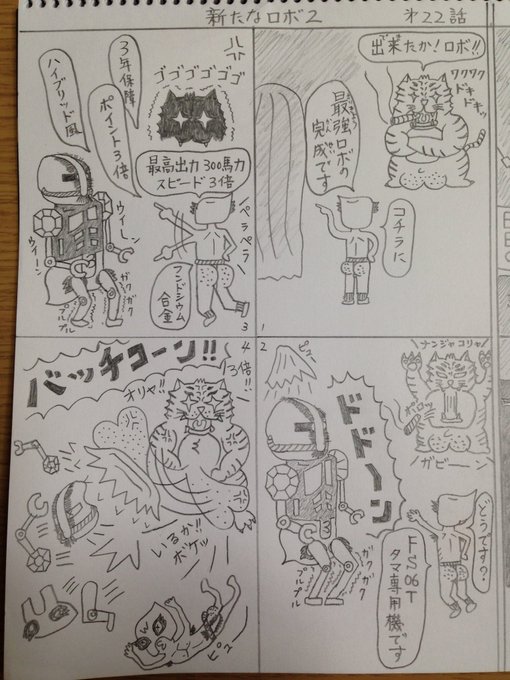 新たなロボ2 オ22話
出来たか!ロボ!!
ワクワク
ドキドキッ
最強ロボの
完成です
さいきょう
かんせい
コチラに
1
2
ピュー
ナンジャコリャ
ポロッ
ガビーーン
ドドーン
どうです?
FS06T
タマ専用機です
ガクガク
プルプル
ゴゴゴゴゴゴ
3年保障
ポイント3倍
ハイブリッド風
最高出力300馬力
スピード3倍
ペラペラ
フンドシウム
合金
ウイーン
ウイーン
ガクガク
プルプル
3
4
バッチコーン!!
オリャ!!
3倍!!
いるか!!
ボケッ
ピュー